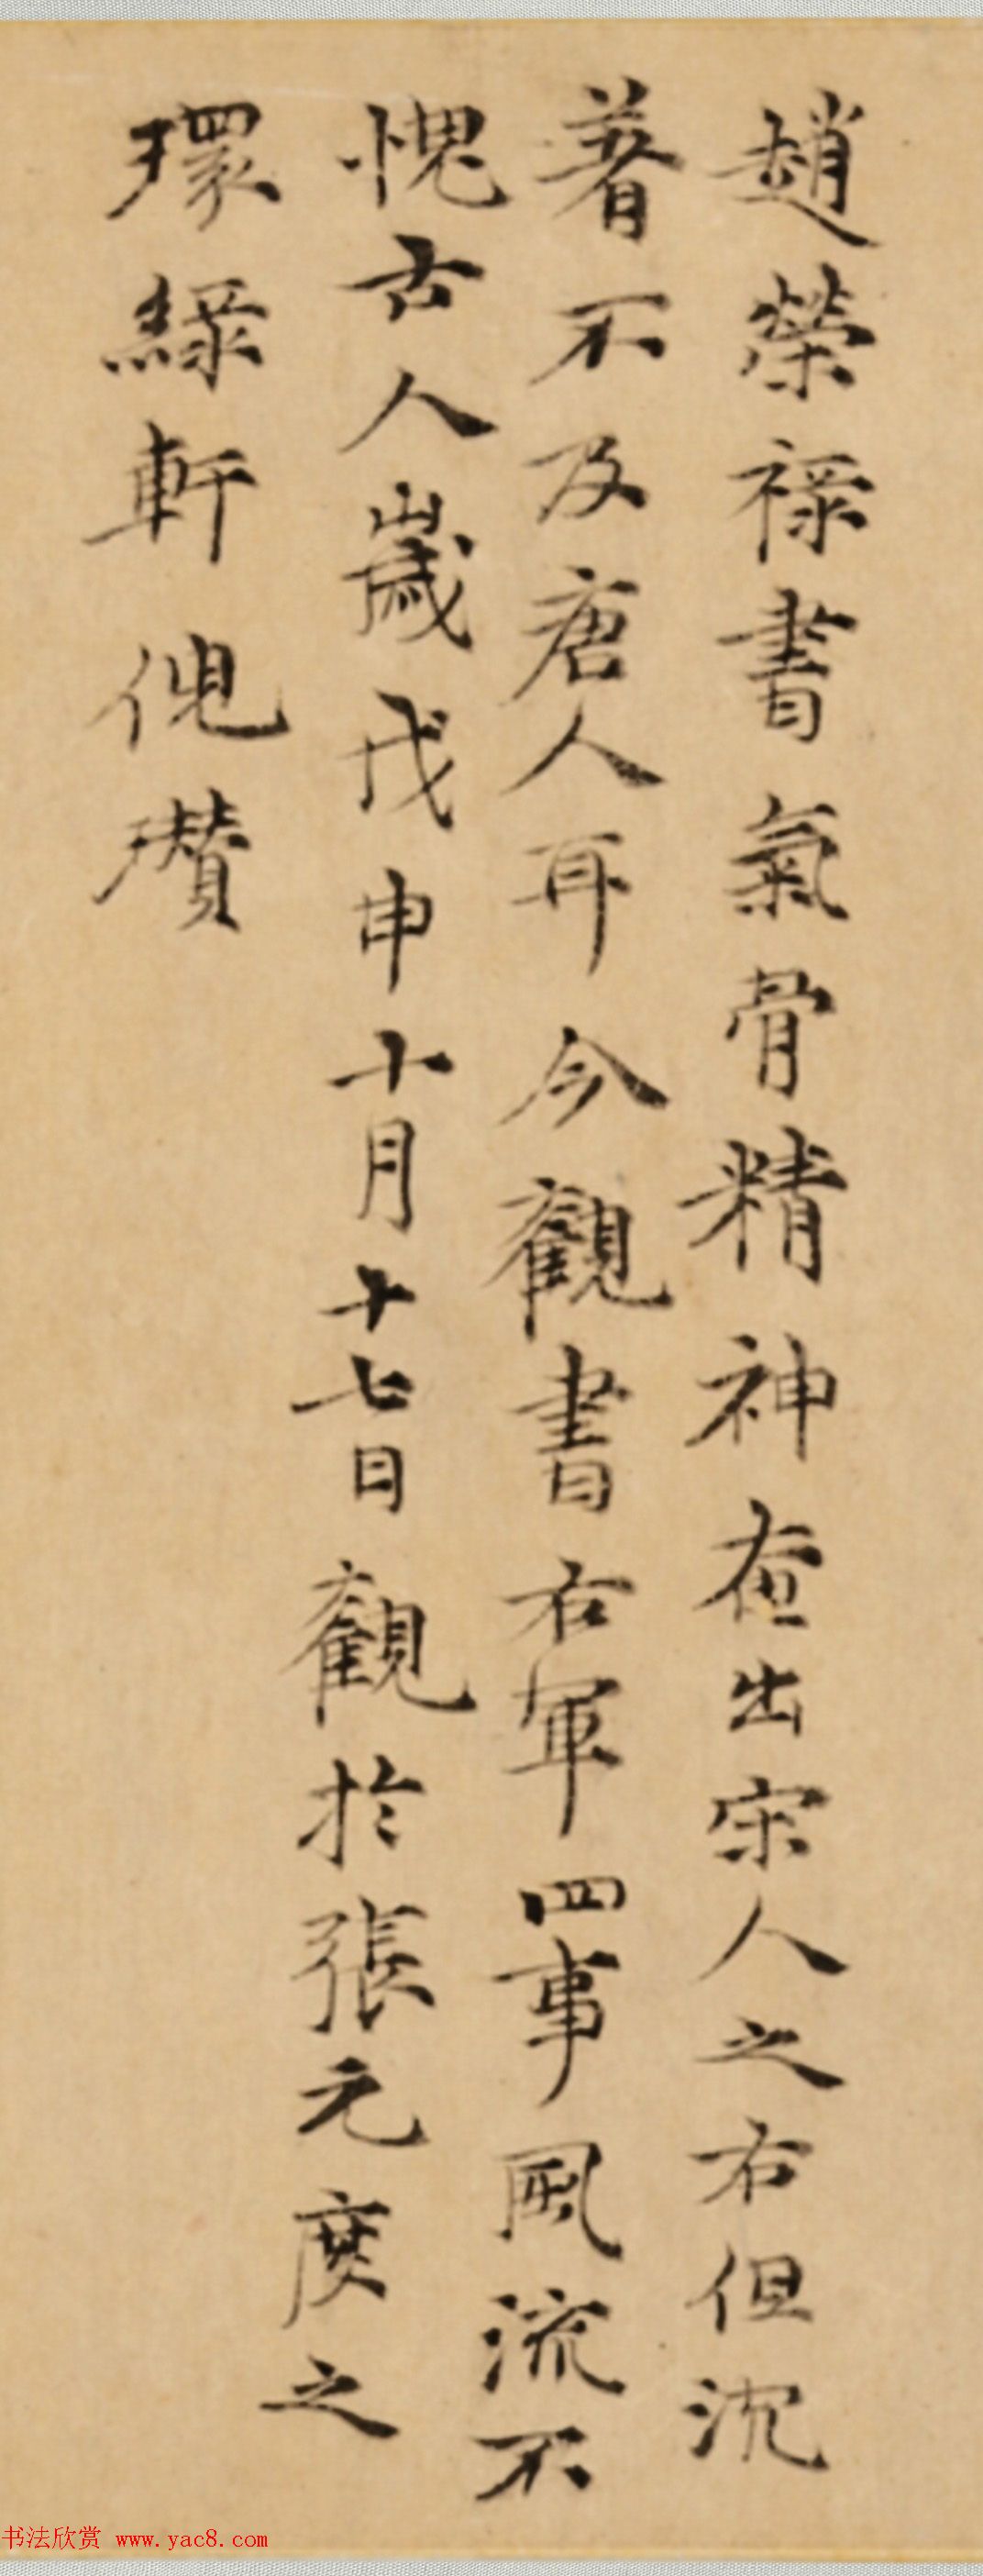 趙榮祿書氣骨精神盍出宋人之右但沈
著不及唐人耳今觀書右軍四事風流不
愧古人歲戊申十月十七日觀於張元度之
環綠軒倪瓚
书法欣赏 www.yac8.com